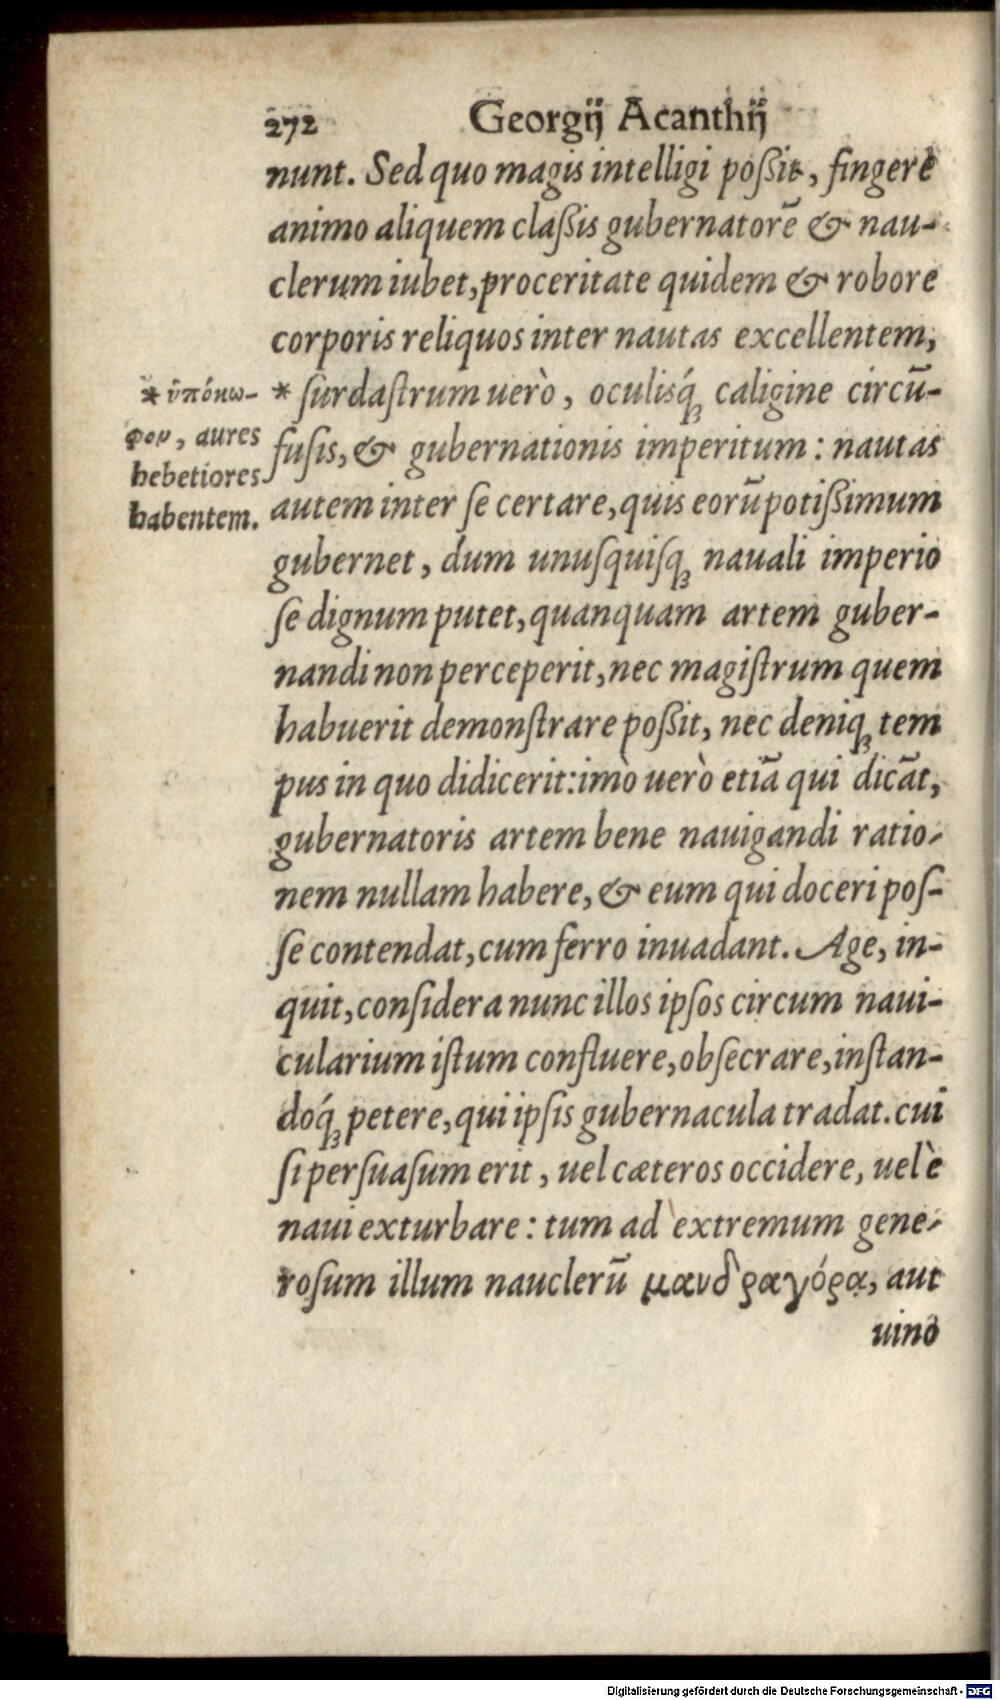 272 Georgij Acanthij
nunt. Sed quo magis intelligi poßit, fingere
animo aliquem claßis gubernatorē & nau-
clerum iubet, proceritate quidem & robore
corporis reliquos inter nautas excellentem,
* ſurdaſtrum uerò, oculisq́ꝫ caligine circū-
fuſis, & gubernationis imperitum: nautas
autem inter ſe certare, quis eorū potißimum
gubernet, dum unuſquiſqꝫ nauali imperio
ſe dignum putet, quanquam artem guber-
nandi non perceperit, nec magiſtrum quem
habuerit demonſtrare poßit, nec deniqꝫ tem
pus in quo didicerit: imò uerò etiā qui dicāt,
gubernatoris artem bene nauigandi ratio-
nem nullam habere, & eum qui doceri poſ-
ſe contendat, cum ferro inuadant. Age, in-
quit, conſidera nunc illos ipſos circum naui-
cularium iſtum confluere, obſecrare, inſtan-
doq́ꝫ petere, qui ipſis gubernacula tradat. cui
ſi perſuaſum erit, uel cæteros occidere, uel è
naui exturbare: tum ad extremum gene-
roſum illum nauclerū μανδραγόρα, aut
uino
* ὑπόκω-
φον, aures
hebetiores
habentem.
Digitalisierung gefördert durch die Deutsche Forschungsgemeinschaft - DFG